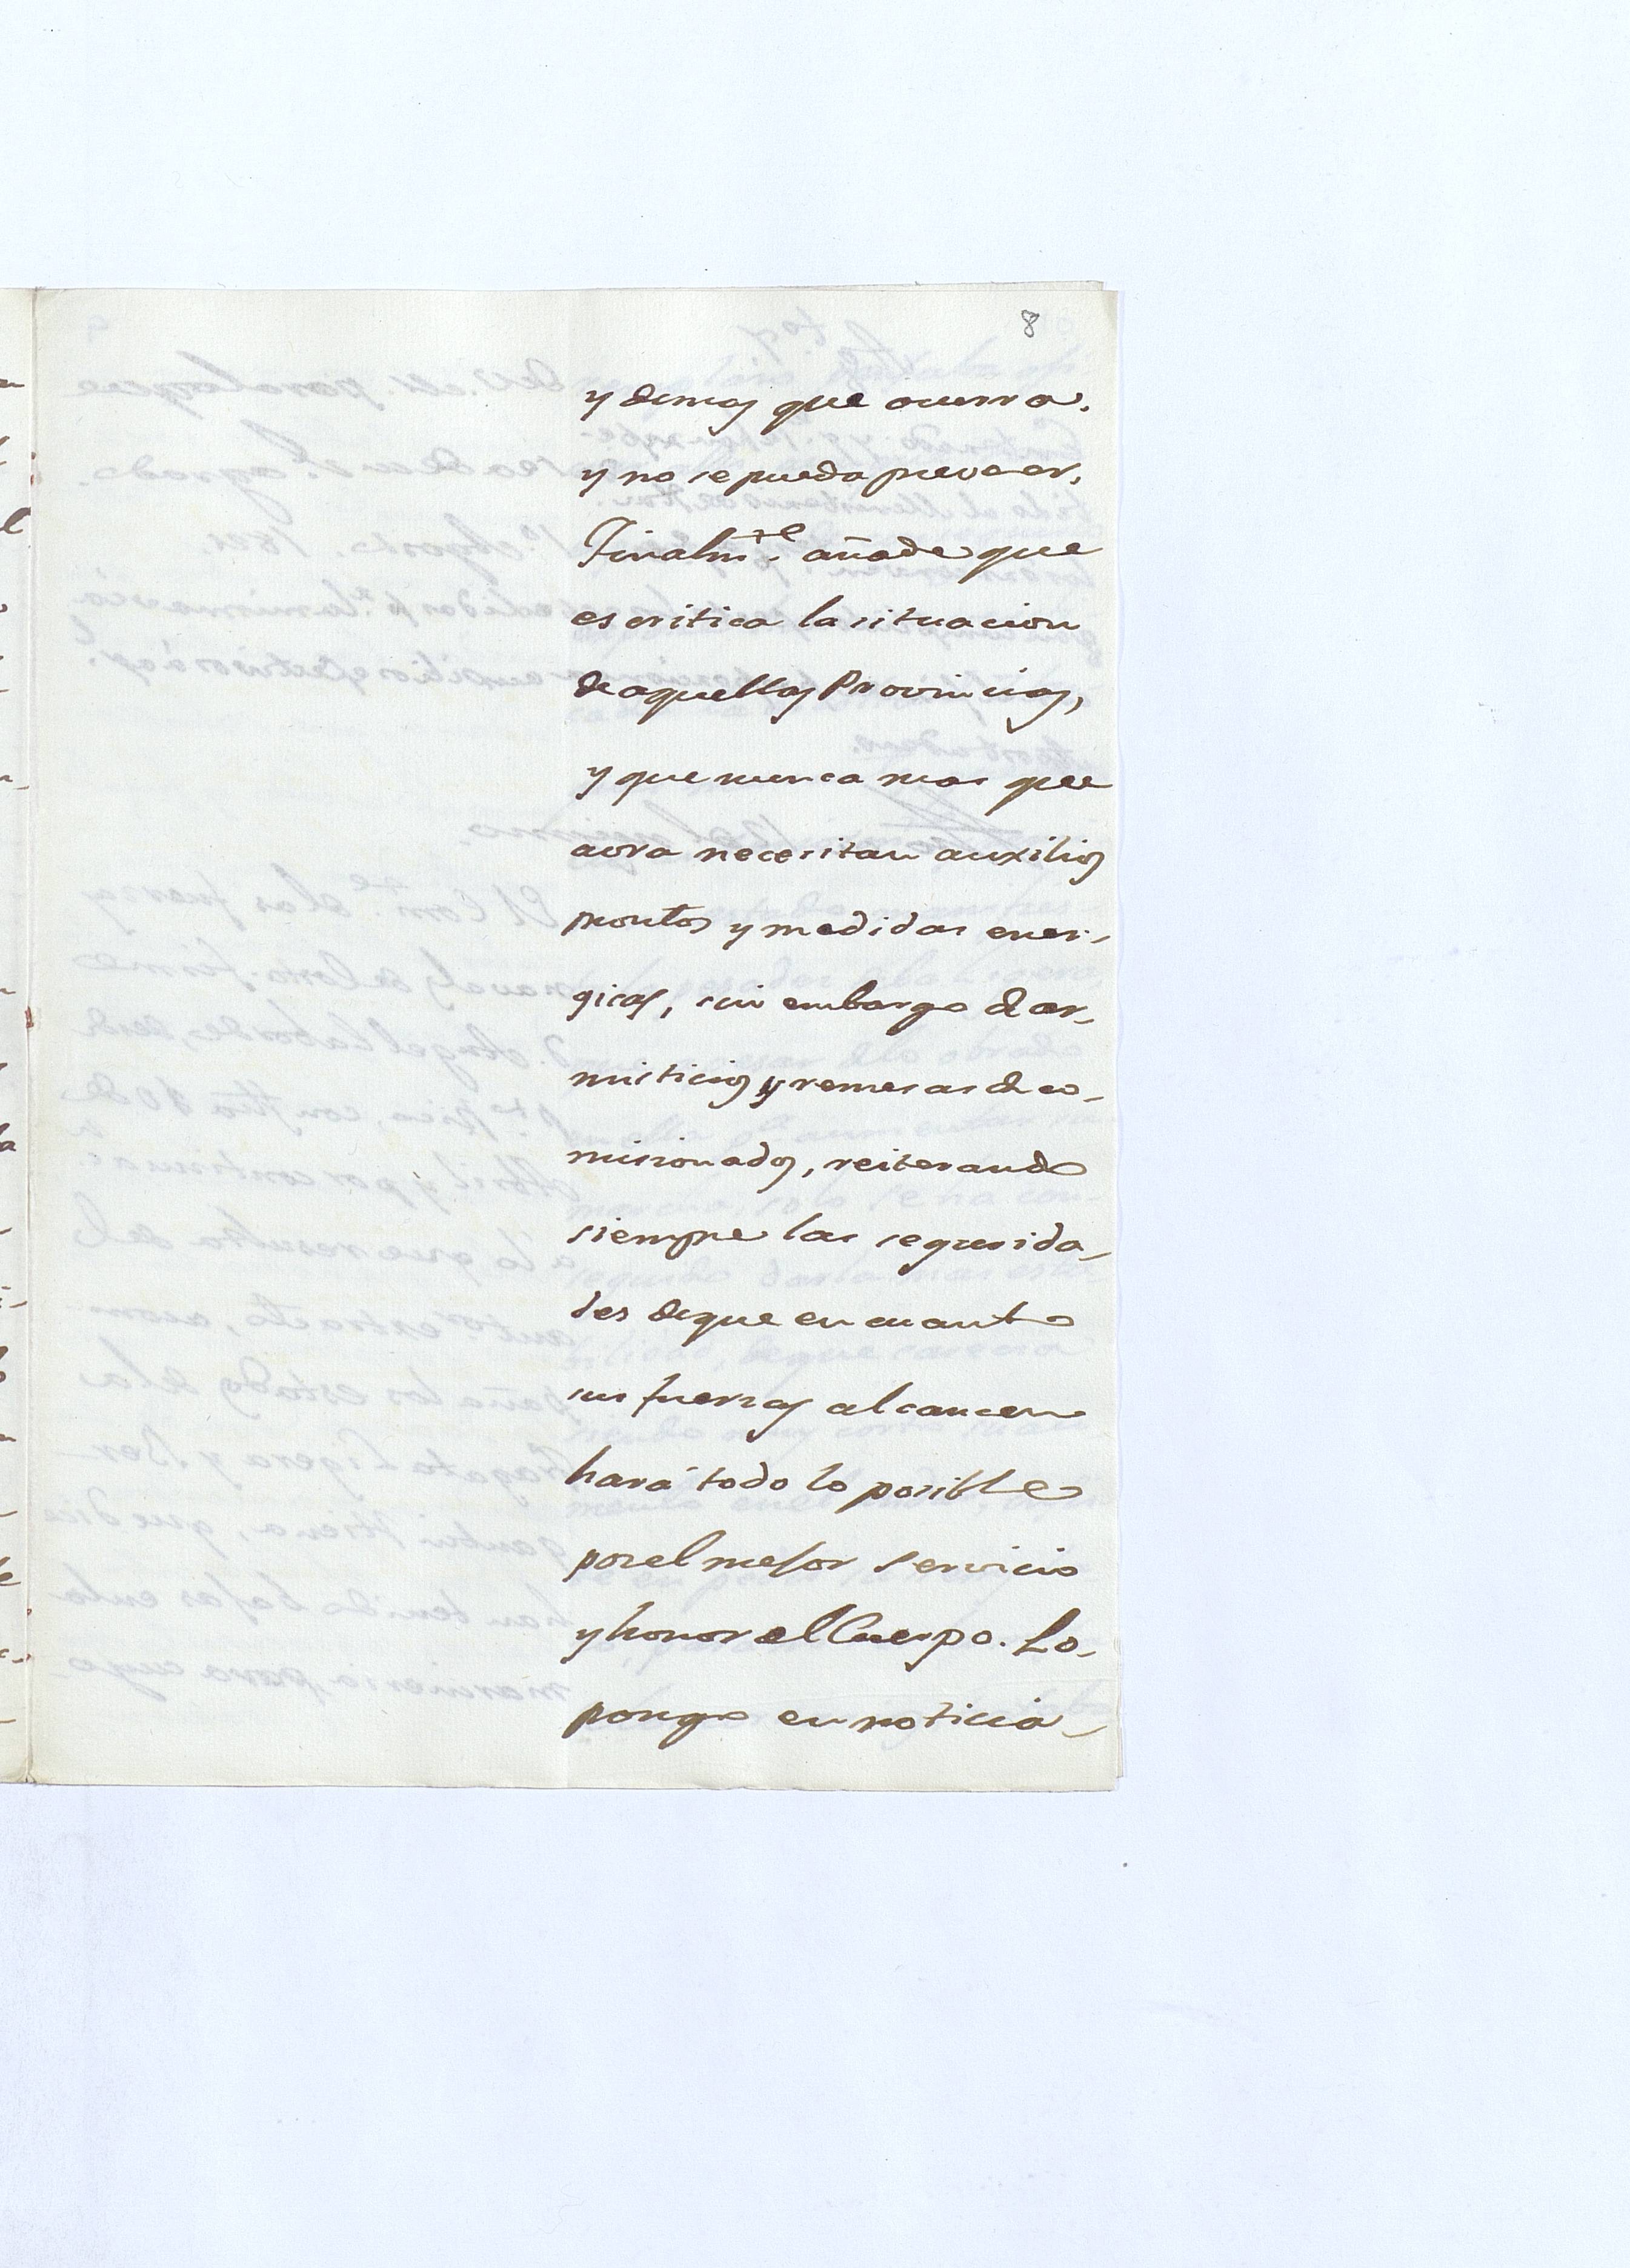 8
y demas que ocurra,
y no se pueda preveer,
Finalm.te añade que
es critica la situacion
de aquellas Provincias,
y que nunca mas que
aora necesitan auxilios
prontos y medidas ener-
gicas, sin embargo de ar-
misticios y remesas de co-
misionados, reiterando
siempre las segurida-
des de que en cuanto
sus fuerzas alcancen
hará todo lo posible
por el mejor servicio
y honor del Cuerpo. Lo
pongo en noticia